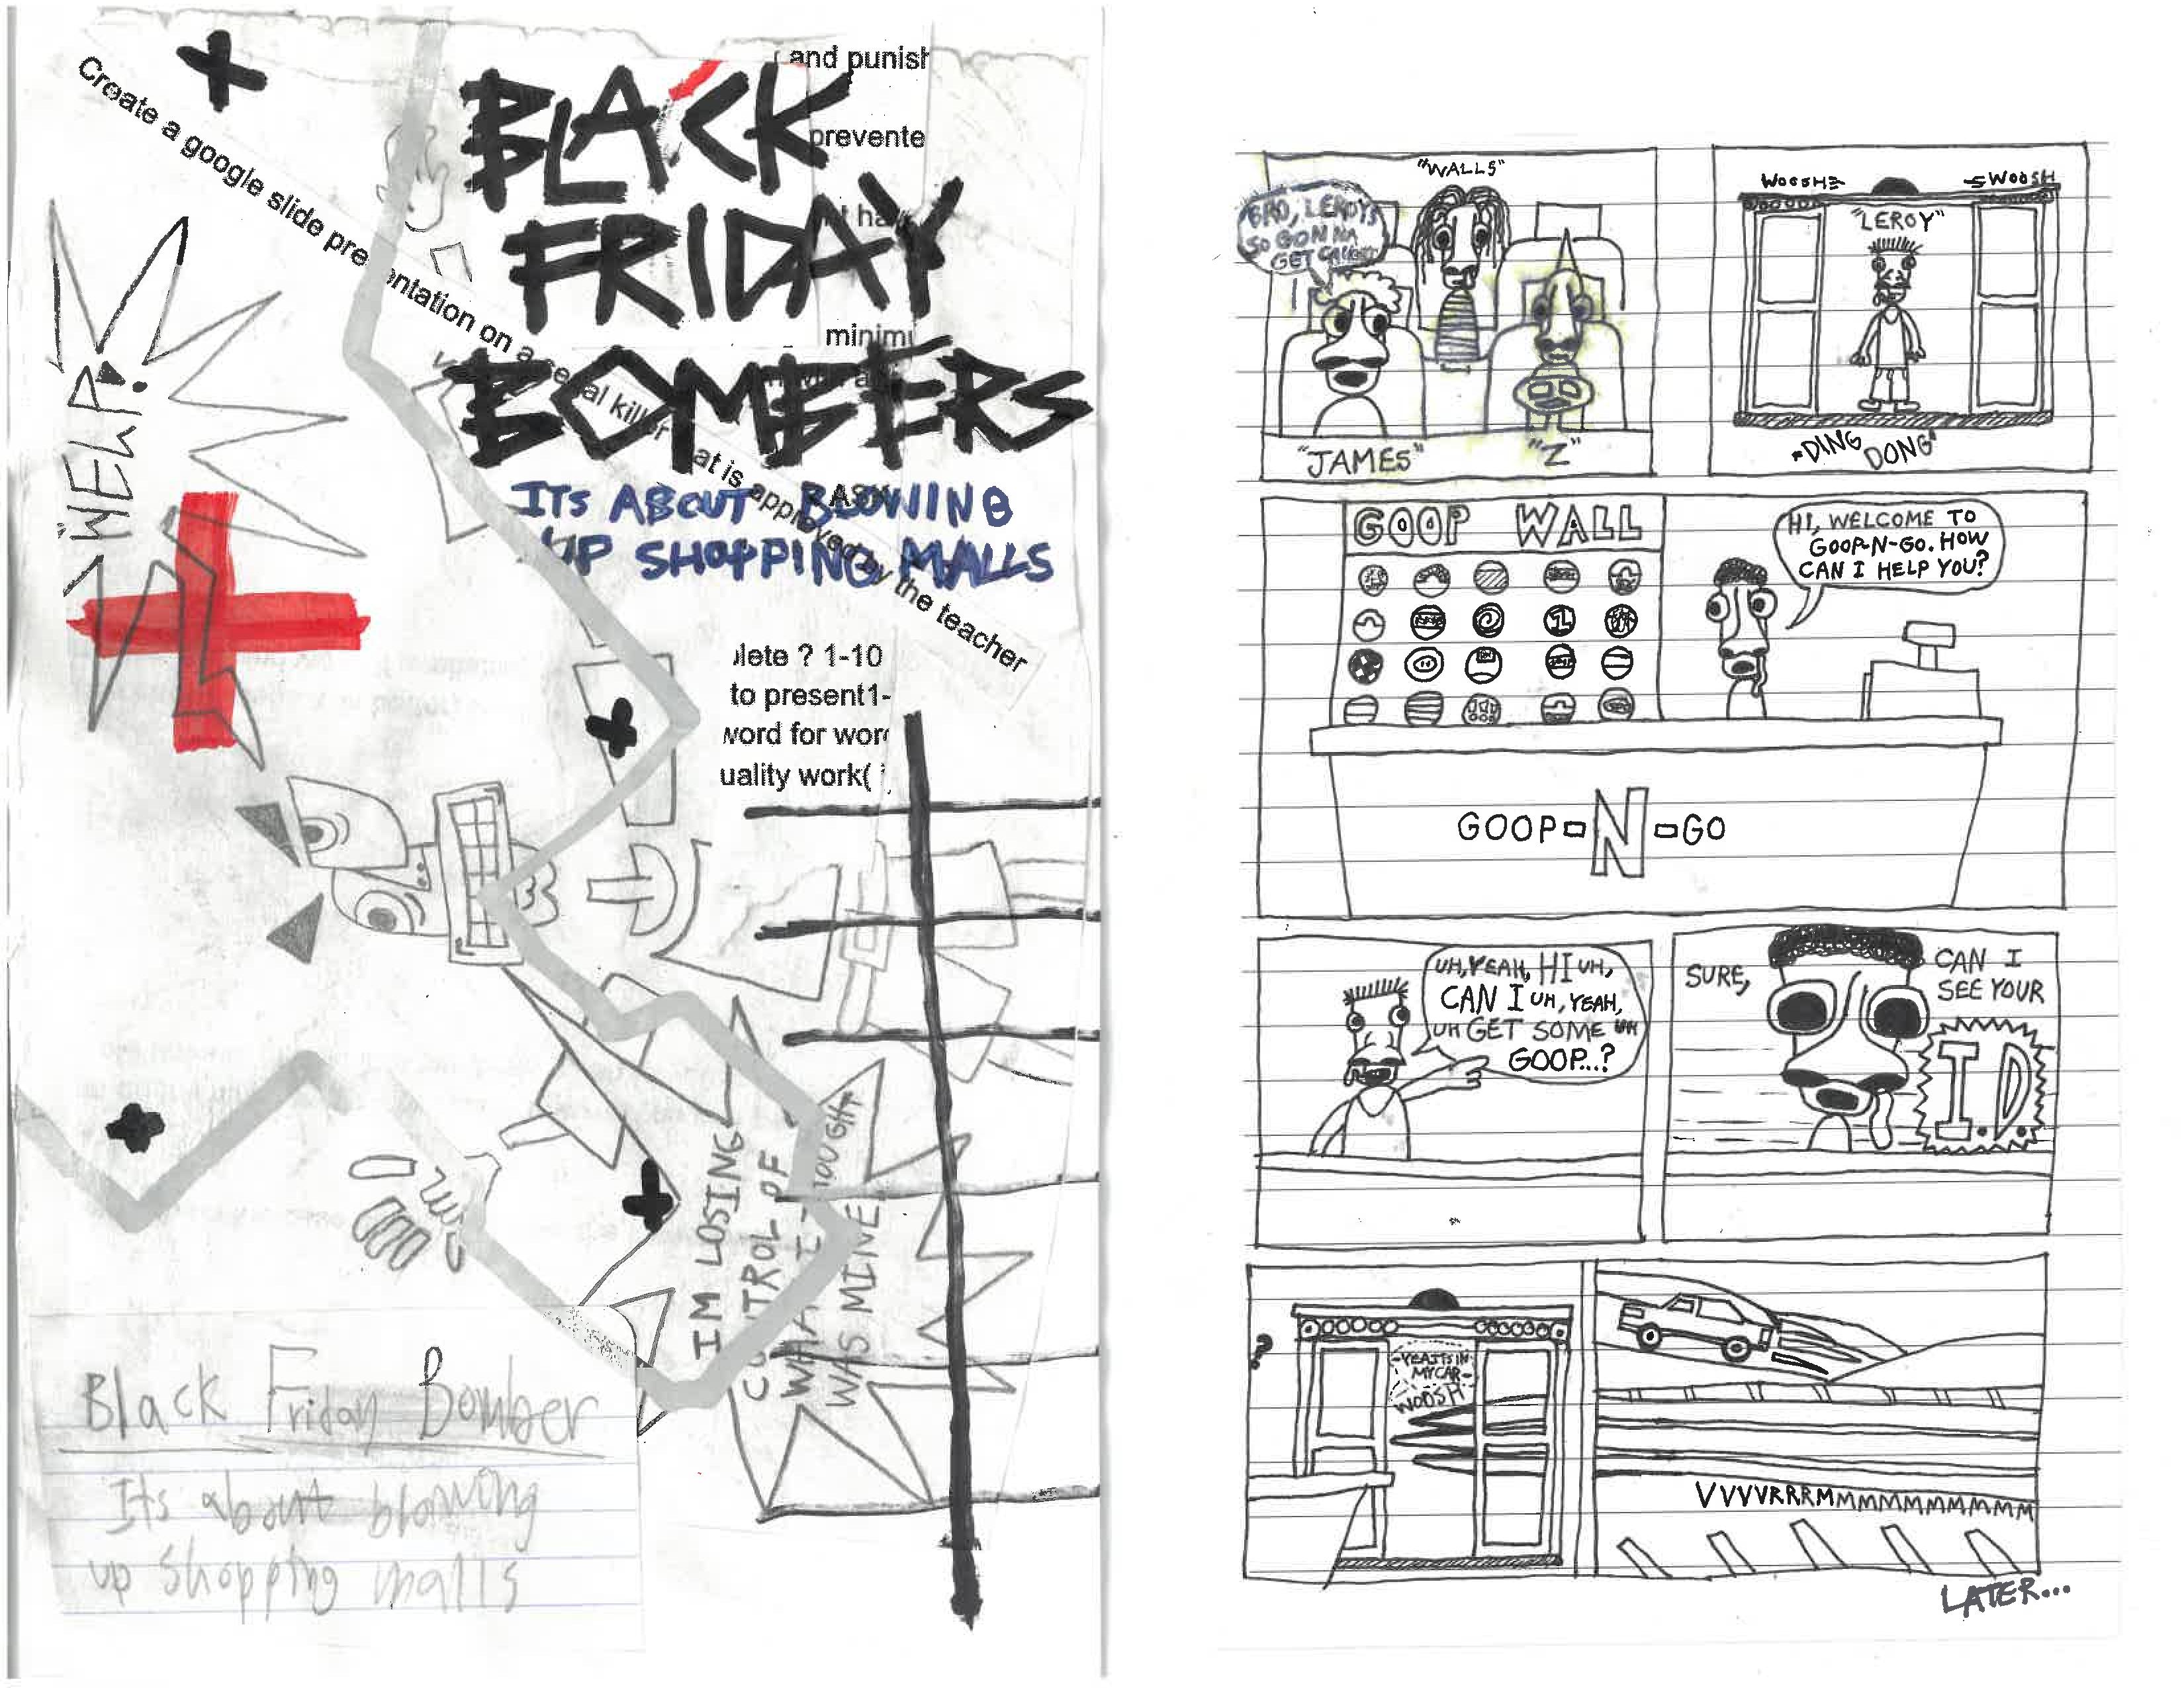 and punish
BLACK
prevente
FRIDAY
ha
minimi
BOMBERS
ITS ABOUT BLOWING
UP SHOPPING MALLS
Create a google slide pre entation on a se al kill at is approved by the teacher
"HELP!
lete ? 1-10
to present1-
word for wor
uality work(
IM LOSING
CONTROL OF
WHAT I THOUGHT
WAS MINE
Black Friday Bomber
Its about blowing
up shopping malls
"WALLS"
BRO, LEROYS
SO GONNA
GET CAUGHT
"JAMES"
"Z"
WOOSH
WOOSH
"LEROY"
"DING
DONG"
GOOP WALL
HI, WELCOME TO
GOOP-N-GO. HOW
CAN I HELP YOU?
GOOP-N-GO
UH, YEAH, HI UH,
CAN I UH, YEAH,
UH GET SOME UH
GOOP...?
SURE,
CAN I
SEE YOUR
I.D.
?
-YEA ITS IN
MY CAR-
WOOSH
VVVVRRRMMMMMMMMMMM
LATER...